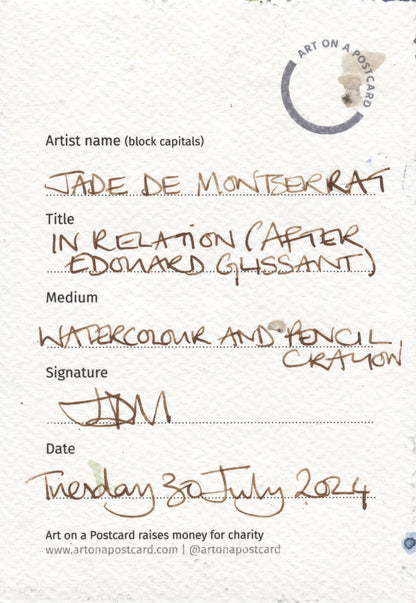 ART ON A POSTCARD
Artist name (block capitals)
JADE DE MONTSERRAT
Title
IN RELATION (AFTER
EDOUARD GLISSANT)
Medium
WATERCOLOUR AND PENCIL
CRAYON
Signature
JDM
Date
Tuesday 30 July 2024
Art on a Postcard raises money for charity
www.artonapostcard.com | @artonapostcard